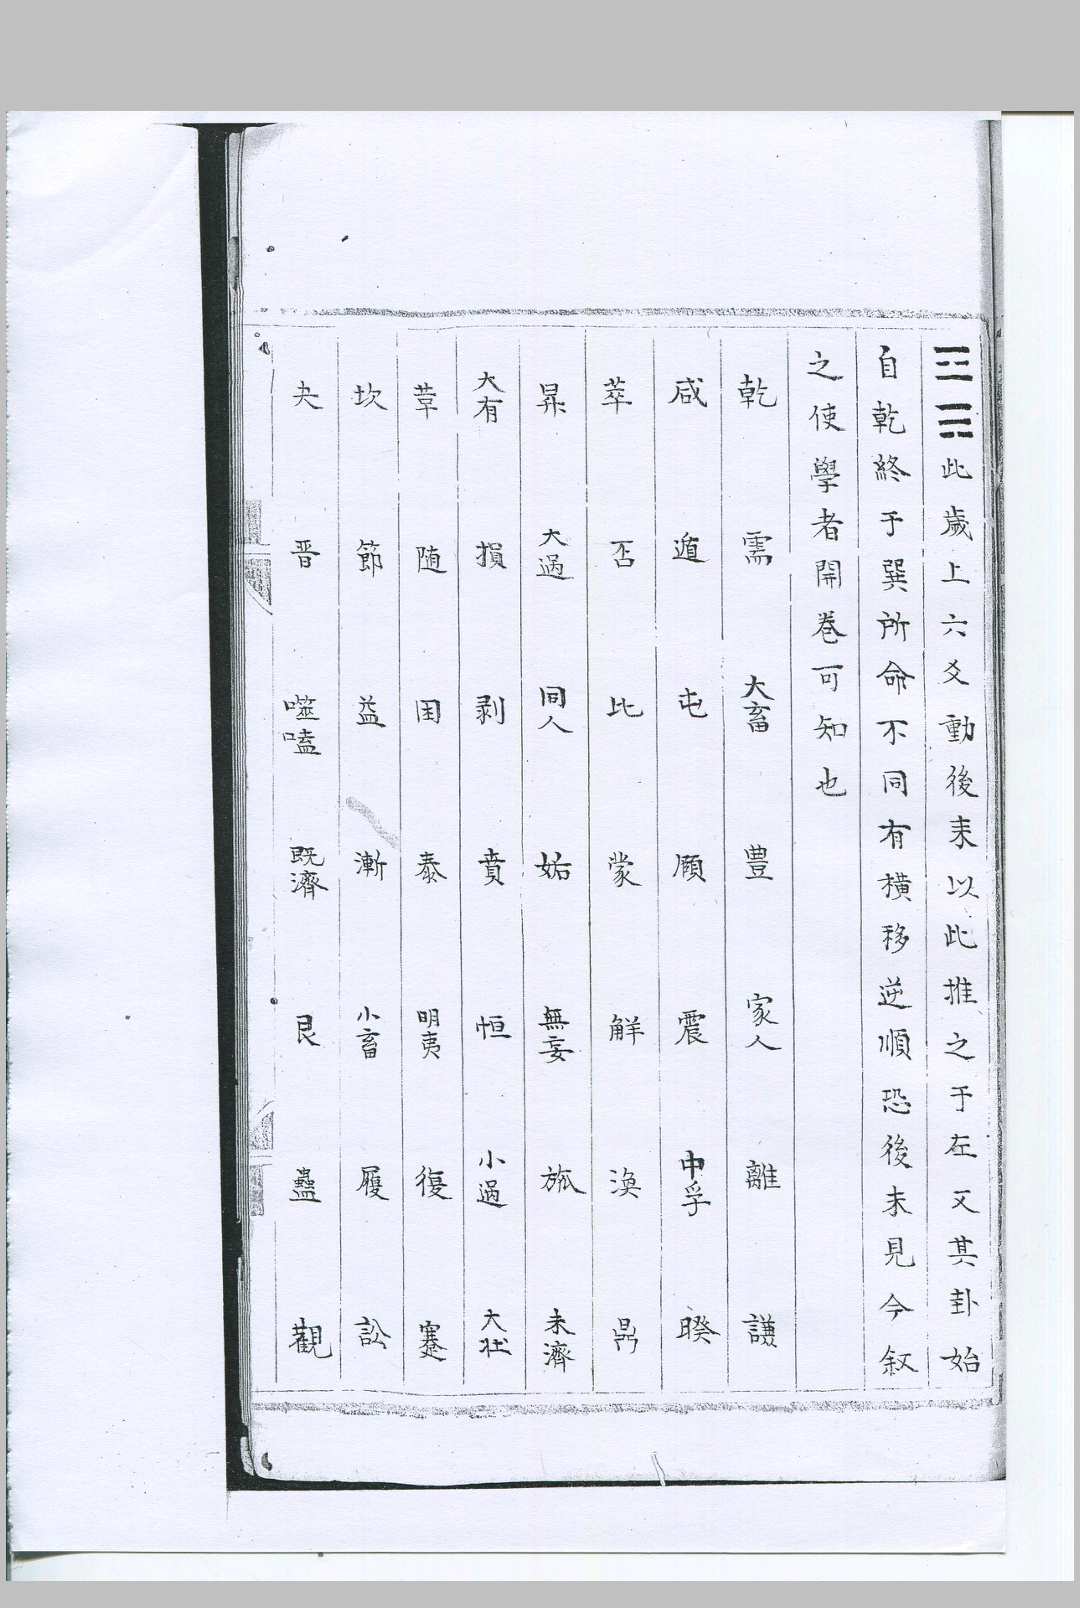 此歲上六爻動後来以此推之于在又其卦始
自乾終于巽所命不同有橫移逆順恐後未見今叙
之使學者開卷可知也
乾 需 大畜 豊 家人 離 謙
咸 遁 屯 頤 震 中孚 暌
萃 否 比 蒙 觧 渙 鼎
昇 大過 同人 姤 無妄 旅 未濟
大有 損 剥 賁 恒 小過 大壯
革 随 困 泰 明夷 復 蹇
坎 節 益 漸 小畜 履 訟
夬 晋 噬嗑 既濟 艮 蠱 觀